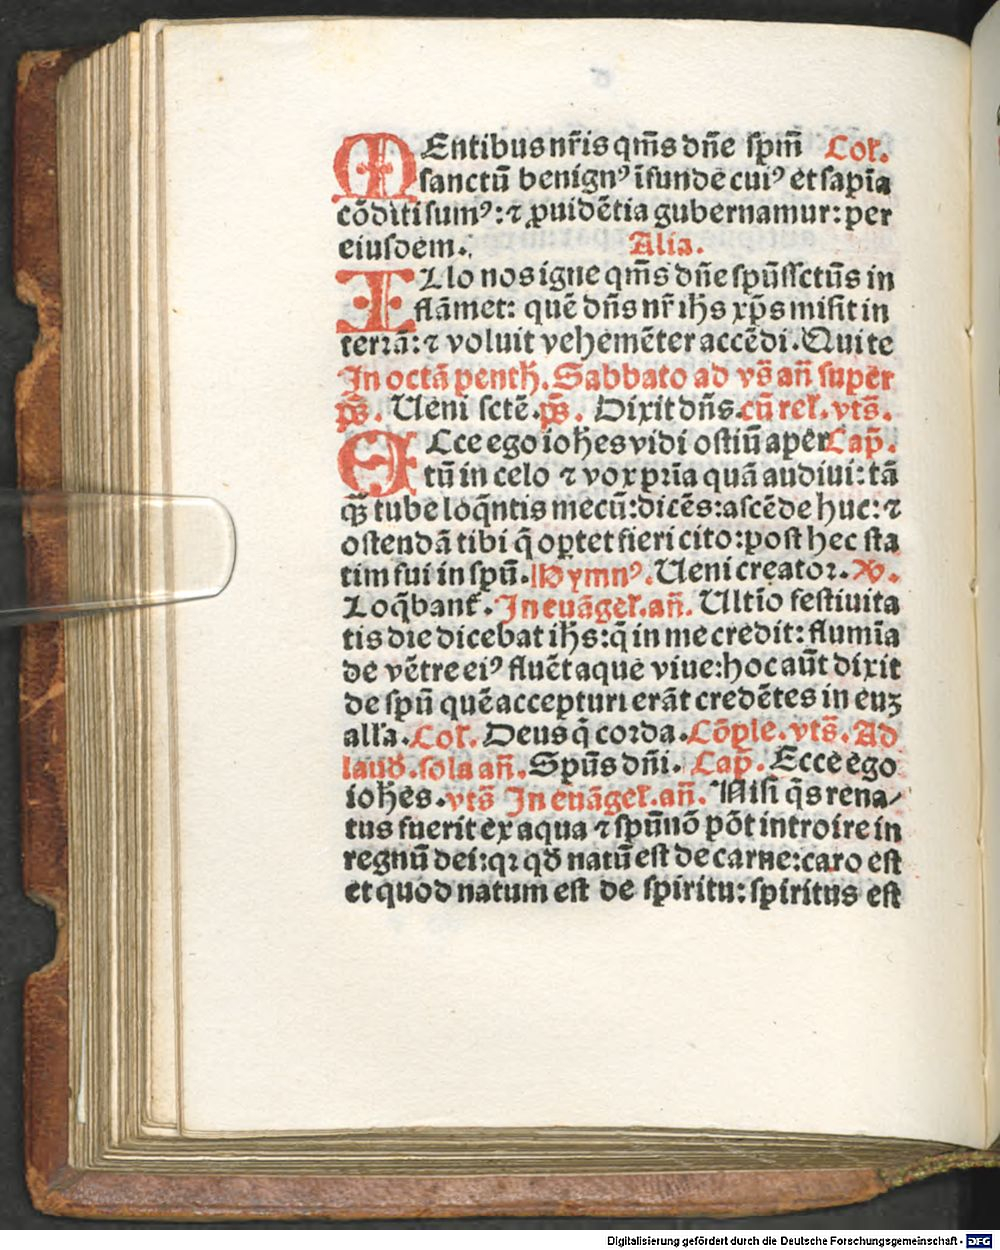 MEntibus nr̃is qm̃s dñe spm̃ Col̃.
sanctũ benignꝰ ĩfunde cuiꝰ et sapĩa
cõditi sumꝰ: ⁊ ꝓuidẽtia gubernamur: per
eiusdem. Alia.
ILlo nos igne qm̃s dñe spũssctũs in
flãmet: quẽ dñs nr̃ ih̃s xp̃s misit in
terrã: ⁊ voluit vehemẽter accẽdi. Qui te
In octã penth̃. Sabbato ad vs̃ añ super
ps̃. Ueni sctẽ. ps̃. Dixit dñs. cũ rel̃. vts̃.
ECce ego ioh̃es vidi ostiũ aper Cap̃.
tũ in celo ⁊ vox prĩa quã audiui: tã
q̃ꝫ tube loq̃ntis mecũ: dicẽs: ascẽde huc: ⁊
ostendã tibi q̃ oꝑtet fieri cito: post hec sta
tim fui in spũ. Hymnꝰ. Ueni creator. ꝟ.
Loq̃bant̃. In euãgel̃. añ. Ultĩo festiuita
tis die dicebat ih̃s: q̃ in me credit: flumĩa
de vẽtre eiꝰ fluẽt aque viue: hoc aũt dixit
de spũ quẽ accepturi erãt credẽtes in euꝫ
all̃a. Col̃. Deus q̃ corda. Cõple. vts̃. Ad
laud̃. sola añ. Spũs dñi. Cap̃. Ecce ego
ioh̃es. vts̃ In euãgel̃. añ. Nisi q̃s rena/
tus fuerit ex aqua ⁊ spũ nõ põt introire in
regnũ dei: qꝛ qd̃ natũ est de carne: caro est
et quod natum est de spiritu: spiritus est
Digitalisierung gefördert durch die Deutsche Forschungsgemeinschaft - DFG